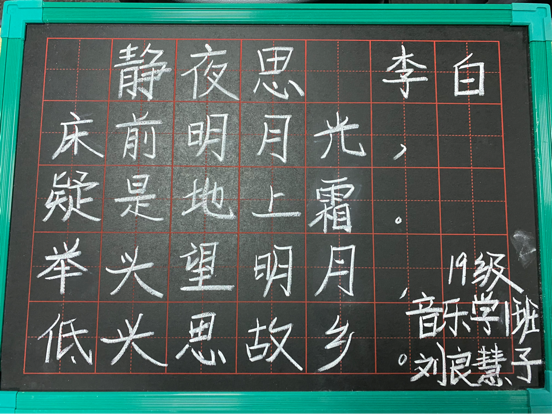 静夜思 李白
床前明月光，
疑是地上霜。
举头望明月，
低头思故乡。
19级
音乐学1班
刘良慧子